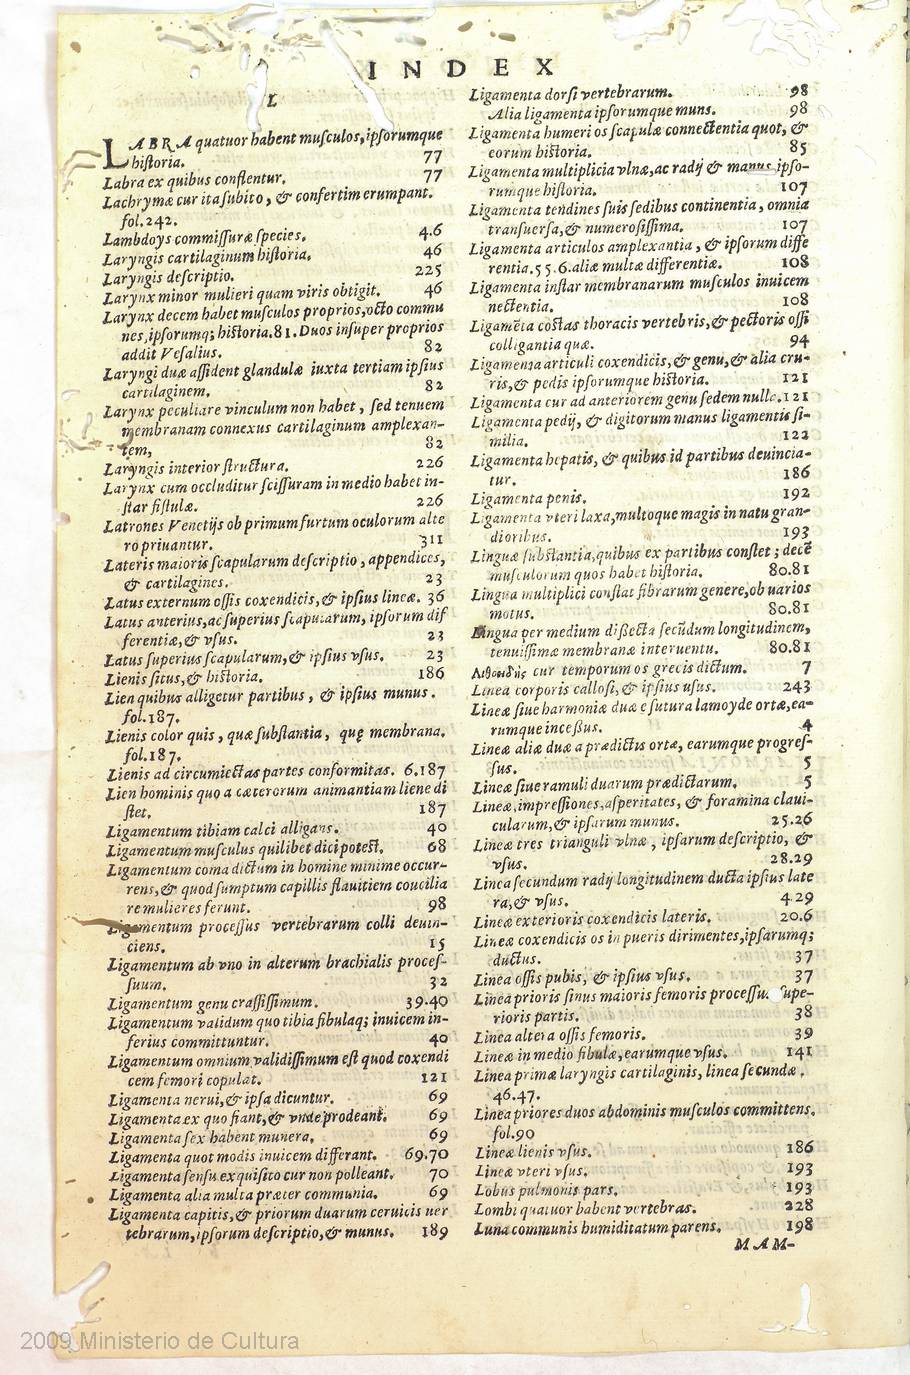 INDEX
L
LABRA quatuor habent musculos, ipsorumque
historia. 77
Labra ex quibus conflentur. 77
Lachrymæ cur ita subito, & confertim erumpant.
fol. 242.
Lambdoys commissuræ species. 4.6
Laryngis cartilaginum historia. 46
Laryngis descriptio. 225
Larynx minor mulieri quam viris obtigit. 46
Larynx decem habet musculos proprios, octo commu
nes, ipsorumq; historia. 81. Duos insuper proprios
addit Vesalius. 82
Laryngi duæ assident glandulæ iuxta tertiam ipsius
cartilaginem. 82
Larynx peculiare vinculum non habet, sed tenuem
membranam connexus cartilaginum amplexan-
tem, 82
Laryngis interior structura. 226
Larynx cum occluditur scissuram in medio habet in-
star fistulæ. 226
Latrones Venetijs ob primum furtum oculorum alte
ro priuantur. 311
Lateris maioris scapularum descriptio, appendices,
& cartilagines. 23
Latus externum ossis coxendicis, & ipsius lineæ. 36
Latus anterius, ac superius scapularum, ipsorum dif
ferentiæ, & vsus. 23
Latus superius scapularum, & ipsius vsus. 23
Lienis situs, & historia. 186
Lien quibus alligetur partibus, & ipsius munus.
fol. 187.
Lienis color quis, quæ substantia, quę membrana.
fol. 187.
Lienis ad circumiectas partes conformitas. 6.187
Lien hominis quo a cæterorum animantiam liene di
stet. 187
Ligamentum tibiam calci alligans. 40
Ligamentum musculus quilibet dici potest. 68
Ligamentum coma dictum in homine minime occur-
rens, & quod sumptum capillis flauitiem concilia
re mulieres ferunt. 98
Ligamentum processus vertebrarum colli deuin-
ciens. 15
Ligamentum ab vno in alterum brachialis proces-
suum. 32
Ligamentum genu crassissimum. 39.40
Ligamentum validum quo tibia fibulaq; inuicem in-
ferius committuntur. 40
Ligamentum omnium validissimum est quod coxendi
cem femori copulat. 121
Ligamenta nerui, & ipsa dicuntur. 69
Ligamenta ex quo fiant, & vnde prodeant. 69
Ligamenta sex habent munera. 69
Ligamenta quot modis inuicem differant. 69.70
Ligamenta sensu exquisito cur non polleant. 70
Ligamenta alia multa præter communia. 69
Ligamenta capitis, & priorum duarum ceruicis uer
tebrarum, ipsorum descriptio, & munus. 189
Ligamenta dorsi vertebrarum. 98
Alia ligamenta ipsorumque muns. 98
Ligamenta humeri os scapulæ connectentia quot, &
eorum historia. 85
Ligamenta multiplicia vlnæ, ac radij & manus ipso-
rumque historia. 107
Ligamenta tendines suis sedibus continentia, omnia
transuersa, & numerosissima. 107
Ligamenta articulos amplexantia, & ipsorum diffe
rentia. 5 5.6. aliæ multæ differentiæ. 108
Ligamenta instar membranarum musculos inuicem
nectentia. 108
Ligamēta costas thoracis vertebris, & pectoris ossi
colligantia quæ. 94
Ligamenta articuli coxendicis, & genu, & alia cru-
ris, & pedis ipsorumque historia. 121
Ligamenta cur ad anteriorem genu sedem nulla. 121
Ligamenta pedij, & digitorum manus ligamentis si-
milia. 122
Ligamenta hepatis, & quibus id partibus deuincia-
tur. 186
Ligamenta penis. 192
Ligamenta vteri laxa, multoque magis in natu gran-
dioribus. 193
Linguæ substantia, quibus ex partibus constet; decē
musculorum quos habet historia. 80.81
Lingua multiplici constat fibrarum genere, ob uarios
motus. 80.81
Lingua per medium dissecta secūdum longitudinem,
tenuissimæ membranæ interuentu. 80.81
cur temporum os grecis dictum. 7
Linea corporis callosi, & ipsius usus. 243
Lineæ siue harmoniæ duæ e sutura lamoyde ortæ, ea-
rumque incessus. 4
Lineæ aliæ duæ a prædictis ortæ, earumque progres-
sus. 5
Lineæ siue ramuli duarum prædictarum. 5
Lineæ, impressiones, asperitates, & foramina claui-
cularum, & ipsarum munus. 25.26
Lineæ tres trianguli vlnæ, ipsarum descriptio, &
vsus. 28.29
Linea secundum radij longitudinem ducta ipsius late
ra, & vsus. 4.29
Lineæ exterioris coxendicis lateris. 20.6
Lineæ coxendicis os in pueris dirimentes, ipsarumq;
ductus. 37
Linea ossis pubis, & ipsius vsus. 37
Linea prioris sinus maioris femoris processus supe-
rioris partis. 38
Linea altera ossis femoris. 39
Lineæ in medio fibulæ, earumque vsus. 141
Linea primæ laryngis cartilaginis, linea secundæ.
46.47.
Linea priores duos abdominis musculos committens.
fol. 90
Lineæ lienis vsus. 186
Lineæ vteri vsus. 193
Lobus pulmonis pars. 193
Lombi quatuor habent vertebras. 228
Luna communis humiditatum parens. 198
MAM-
2009 Ministerio de Cultura